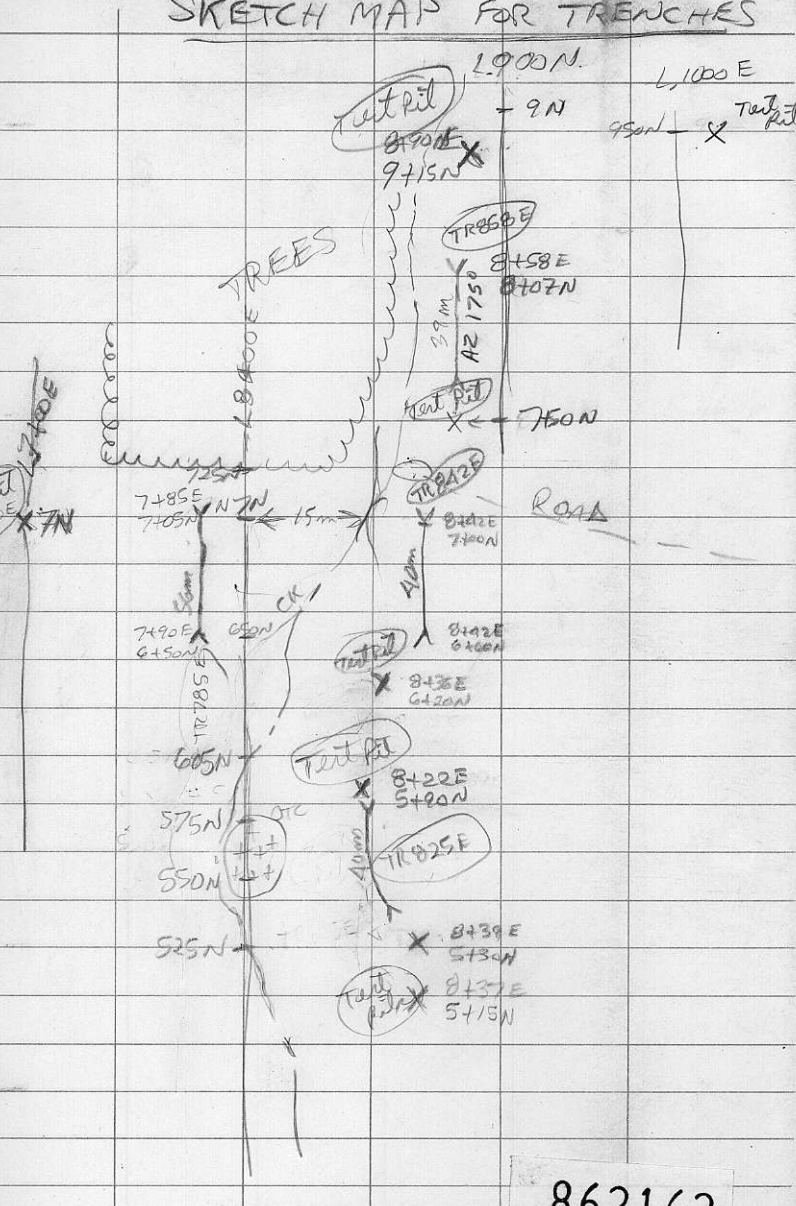 SKETCH MAP FOR TRENCHES
L900N
L1000E
Test Pit
9N
950N
Test Pit
8+90E
9+15N
TR858E
8+58E
8+07N
TREES
39m
AZ 175°
L8+00E
Test Pit
750N
L7+00E
725N
TR842E
7+85E
7+05N
7N
15m
8+42E
7+00N
ROAD
7N
56m
40m
CK
7+90E
6+50N
650N
8+42E
6+60N
Test Pit
TR785E
8+36E
6+20N
605N
Test Pit
8+22E
5+90N
575N
OTC
40m
TR825E
550N
525N
8+38E
5+30N
Test pits
8+37E
5+15N
862162